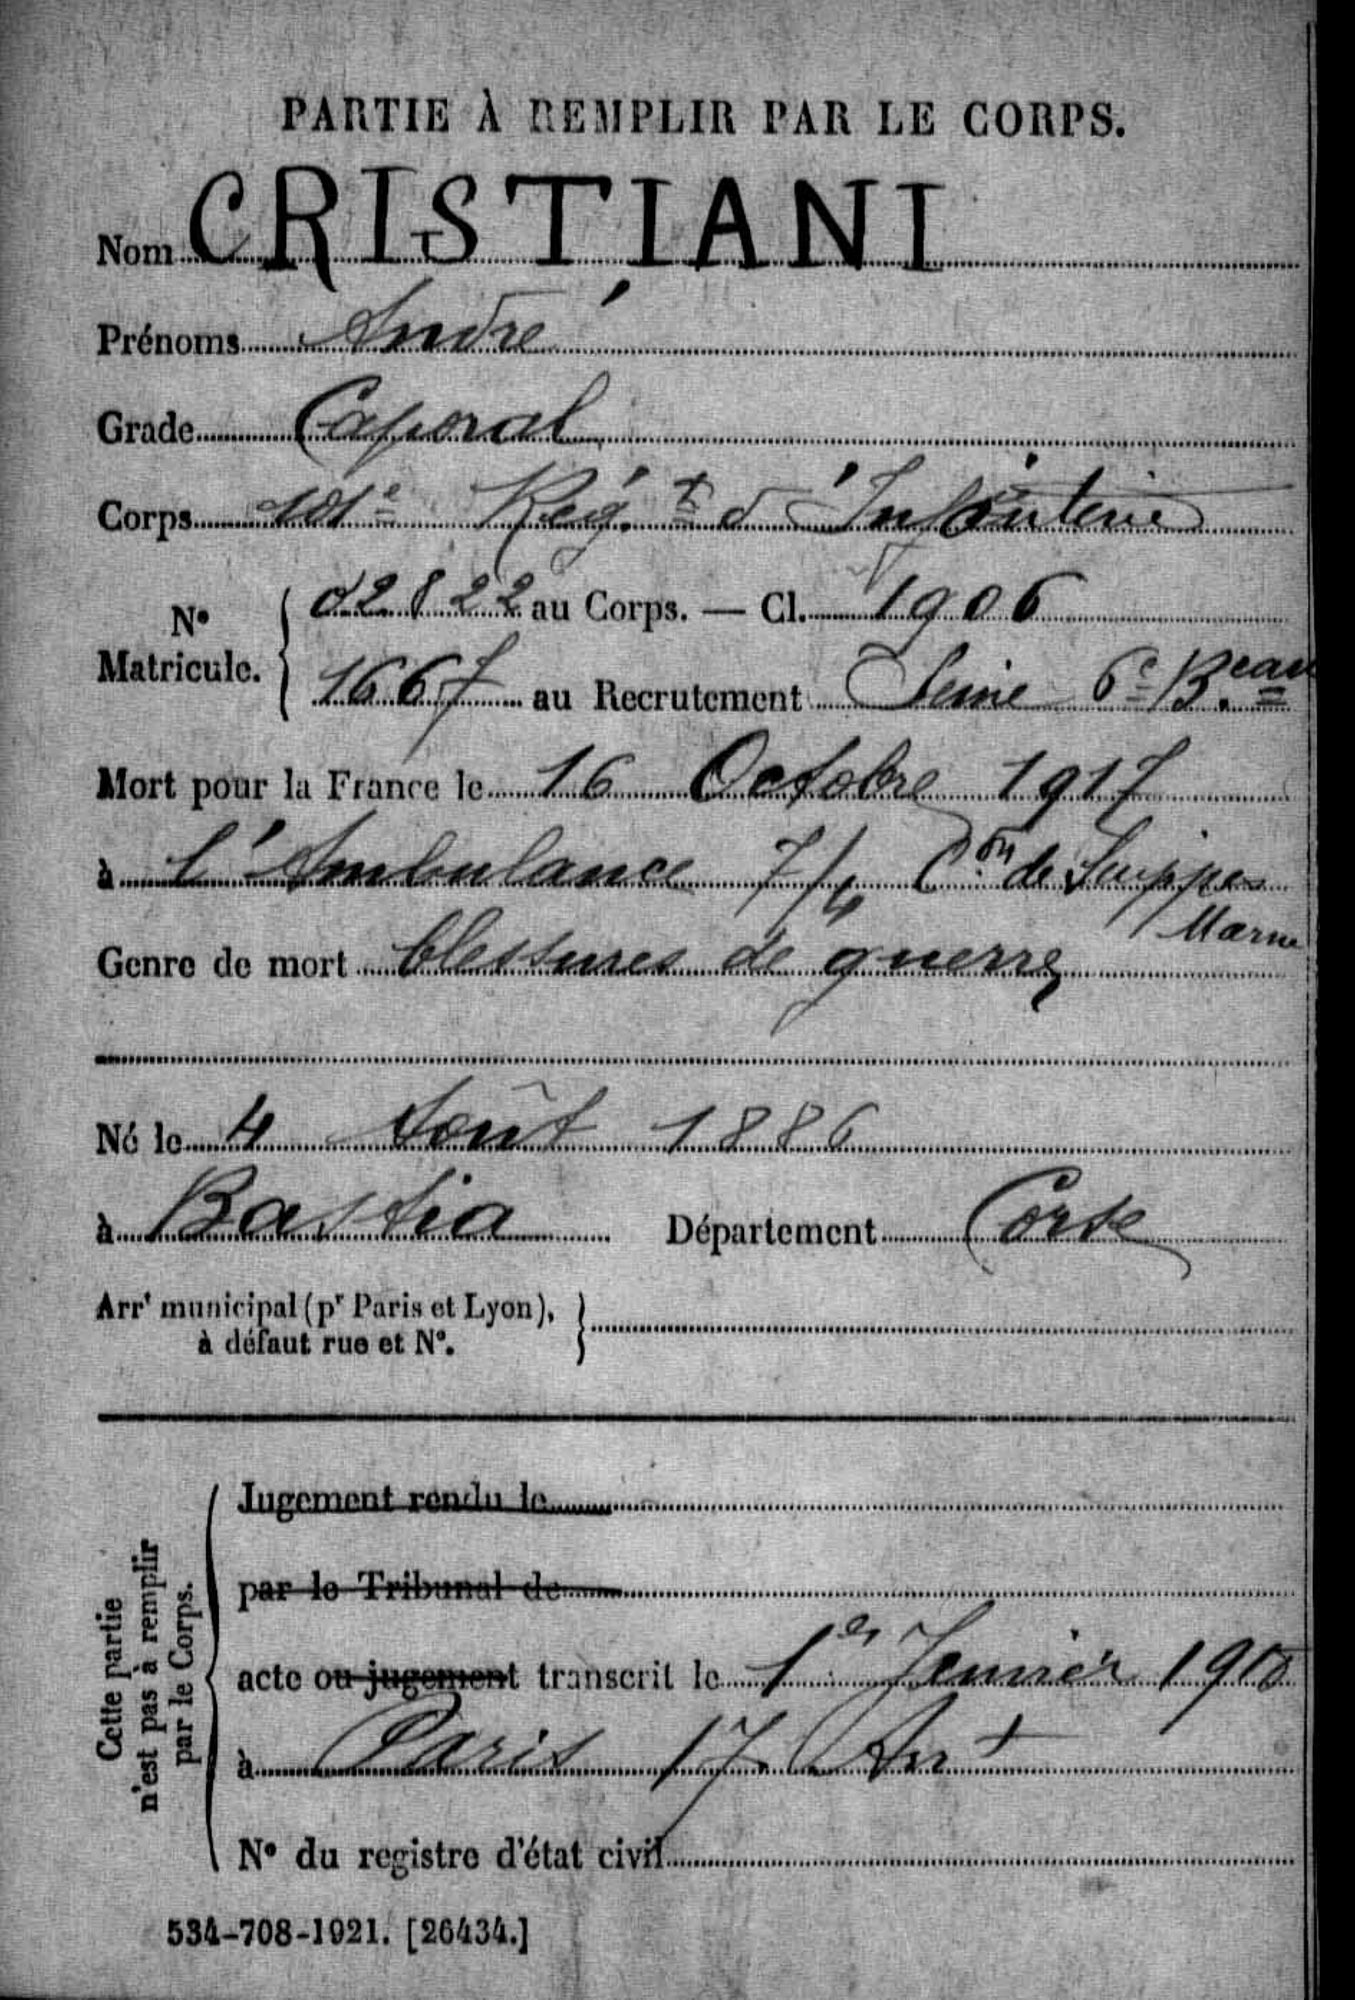 PARTIE À REMPLIR PAR LE CORPS.
Nom CRISTIANI
Prénoms André
Grade Caporal
Corps 101e Rég.t d'Infanterie
No Matricule. 12822 au Corps. — Cl. 1906
1667 au Recrutement Seine 6e B.eau
Mort pour la France le 16 Octobre 1917
à l'Ambulance 7/4 de Suippes
Marne
Genre de mort blessures de guerre
Né le 4 Août 1886
à Bastia Département Corse
Arrt municipal (pr Paris et Lyon),
à défaut rue et No.
Cette partie
n'est pas à remplir
par le Corps.
Jugement rendu le
par le Tribunal de
acte ou jugement transcrit le 1er Janvier 1918
à Paris 17 Arrt
No du registre d'état civil
534-708-1921. [26434.]